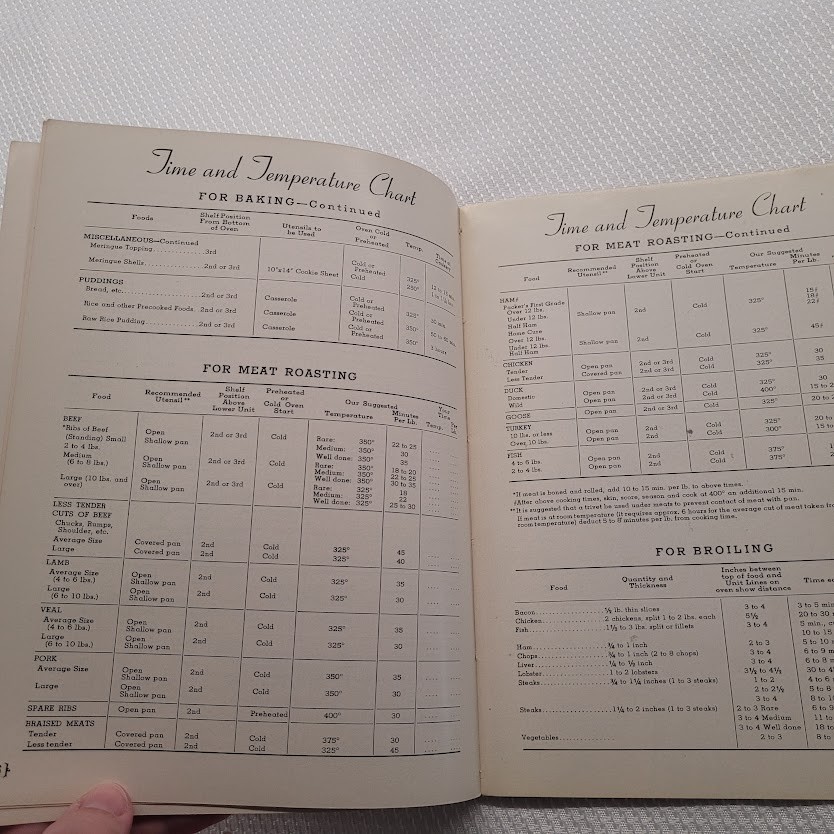 Time and Temperature Chart
FOR BAKING—Continued
Foods Shelf Position From Bottom of Oven Utensils to be Used Oven Cold or Preheated Temp.
MISCELLANEOUS—Continued
Meringue Topping 3rd Cold or Preheated 325°
Meringue Shells 2nd or 3rd 10"x14" Cookie Sheet Cold 250°
PUDDINGS
Bread, etc. 2nd or 3rd Casserole Cold or Preheated 325°
Rice and other Precooked Foods 2nd or 3rd Casserole Cold or Preheated 350°
Raw Rice Pudding 2nd or 3rd Casserole Cold or Preheated
FOR MEAT ROASTING
Food Recommended Utensil** Shelf Position Above Lower Unit Preheated or Cold Oven Start Our Suggested Temperature Minutes Per Lb. Your Time Temp. Per Lb.
BEEF
*Ribs of Beef (Standing) Small 2 to 4 lbs. Open Shallow pan 2nd or 3rd Cold Rare: 350° 22 to 25
Medium: 350° 30
Well done: 350° 35
Medium (6 to 8 lbs.) Open Shallow pan 2nd or 3rd Cold Rare: 350° 18 to 20
Medium: 350° 22 to 25
Well done: 350° 30 to 35
Large (10 lbs. and over) Open Shallow pan 2nd or 3rd Cold Rare: 325° 18
Medium: 325° 22
Well done: 325° 25 to 30
LESS TENDER CUTS OF BEEF
Chucks, Rumps, Shoulder, etc.
Average Size Covered pan 2nd Cold 325° 45
Large Covered pan 2nd Cold 325° 40
LAMB
Average Size (4 to 6 lbs.) Open Shallow pan 2nd Cold 325° 35
Large (6 to 10 lbs.) Open Shallow pan 2nd Cold 325° 30
VEAL
Average Size (4 to 6 lbs.) Open Shallow pan 2nd Cold 325° 35
Large (6 to 10 lbs.) Open Shallow pan 2nd Cold 325° 30
PORK
Average Size Open Shallow pan 2nd Cold 350° 35
Large Open Shallow pan 2nd Cold 350° 30
SPARE RIBS Open pan 2nd Preheated 400° 30
BRAISED MEATS
Tender Covered pan 2nd Cold 375° 30
Less tender Covered pan 2nd Cold 325° 45
Time and Temperature Chart
FOR MEAT ROASTING—Continued
Food Recommended Utensil** Shelf Position Above Lower Unit Preheated or Cold Oven Start Our Suggested Temperature Minutes Per Lb.
HAM‡
Packer's First Grade Shallow pan 2nd Cold 325°
Over 12 lbs.
Under 12 lbs.
Half Ham
Home Cure Shallow pan 2nd Cold 325°
Over 12 lbs.
Under 12 lbs.
Half Ham
CHICKEN
Tender Open pan 2nd or 3rd Cold 325° 30
Less Tender Covered pan 2nd or 3rd Cold 325° 35
DUCK
Domestic Open pan 2nd or 3rd Cold 325° 30
Wild Open pan 2nd or 3rd Cold 400°
GOOSE Open pan 2nd or 3rd Cold 325°
TURKEY
10 lbs. or less Open pan 2nd Cold 325°
Over 10 lbs. Open pan 2nd Cold 300°
FISH
4 to 6 lbs. Open pan 2nd Cold 375°
2 to 4 lbs. Open pan 2nd Cold 375°
*If meat is boned and rolled, add 10 to 15 min. per lb. to above times.
‡After above cooking times, skin, score, season and cook at 400° an additional 15 min.
**It is suggested that a trivet be used under meats to prevent contact of meat with pan.
If meat is at room temperature (it requires approx. 6 hours for the average cut of meat taken
room temperature) deduct 5 to 8 minutes per lb. from cooking time.
FOR BROILING
Food Quantity and Thickness Inches between top of food and Unit Lines on oven show distance Time
Bacon ½ lb. thin slices 3 to 4 3 to 5
Chicken 2 chickens, split 1 to 2 lbs. each 5½ 20 to 30
Fish 1½ to 3 lbs. split or fillets 3 to 4 5 min.,
10 to 15
Ham ¾ to 1 inch 2 to 3 5 to 10
Chops ¾ to 1 inch (2 to 8 chops) 3 to 4 6 to 9
Liver ¼ to ½ inch 3 to 4 6 to 8
Lobster 1 to 2 lobsters 3½ to 4½ 30 to
Steaks ¾ to 1¼ inches (1 to 3 steaks) 1 to 2 4 to 6
2 to 2½ 5 to 8
3 to 4 8 to
Steaks 1¼ to 2 inches (1 to 3 steaks) 2 to 3 Rare 6 to
3 to 4 Medium 11 to
3 to 4 Well done 18 to
Vegetables 2 to 3 8 to